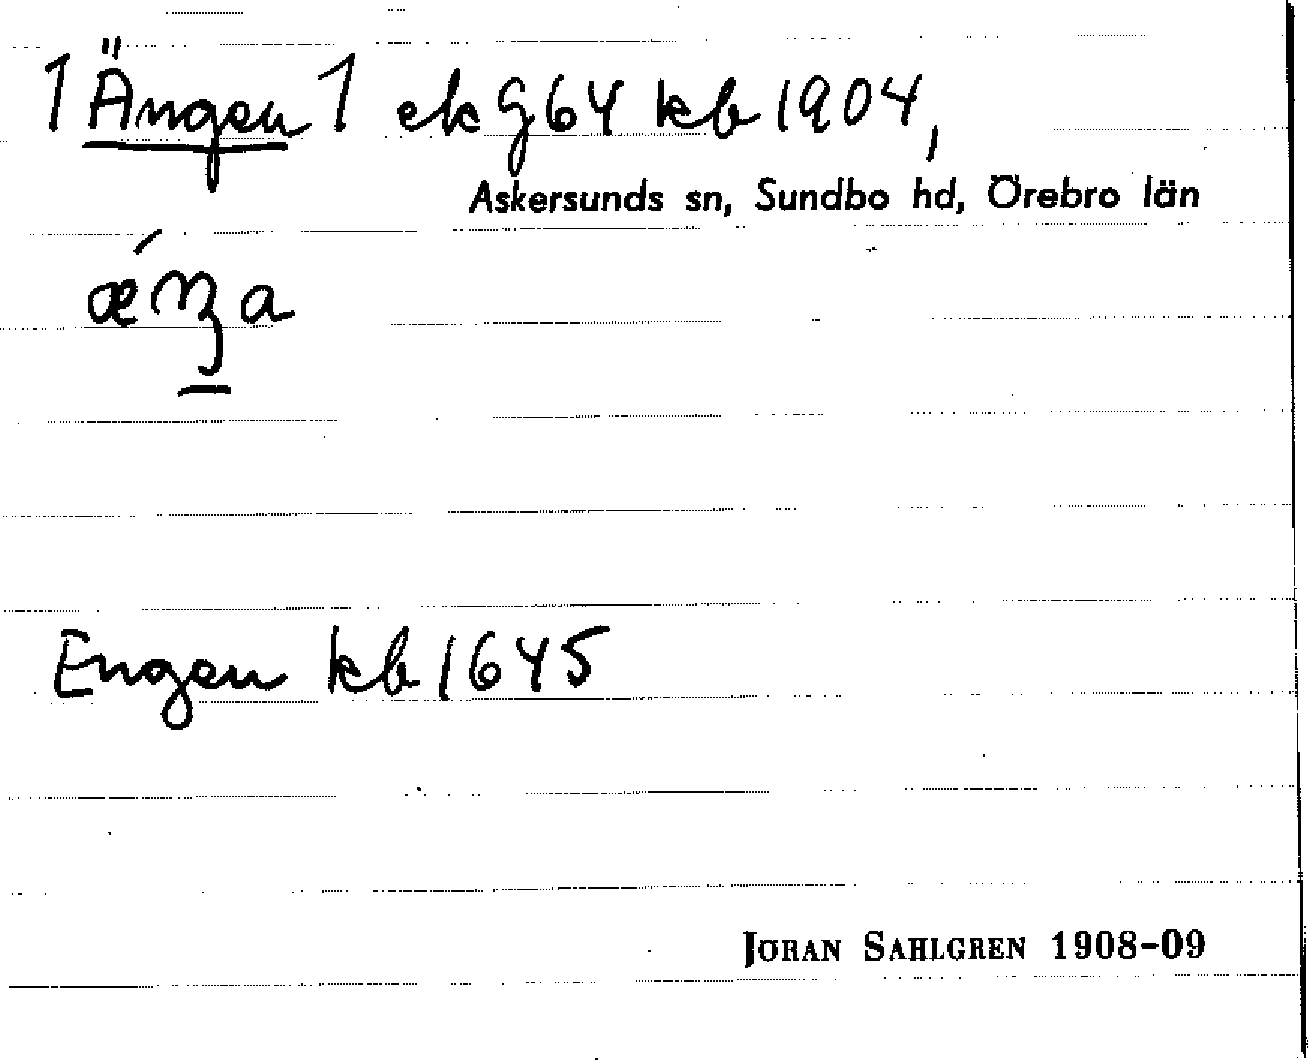 1 Ängen 1 ek G64 kb 1904,
Askersunds sn, Sundbo hd, Örebro län
ǽŋa
Engen kb 1645
JÖRAN SAHLGREN 1908-09